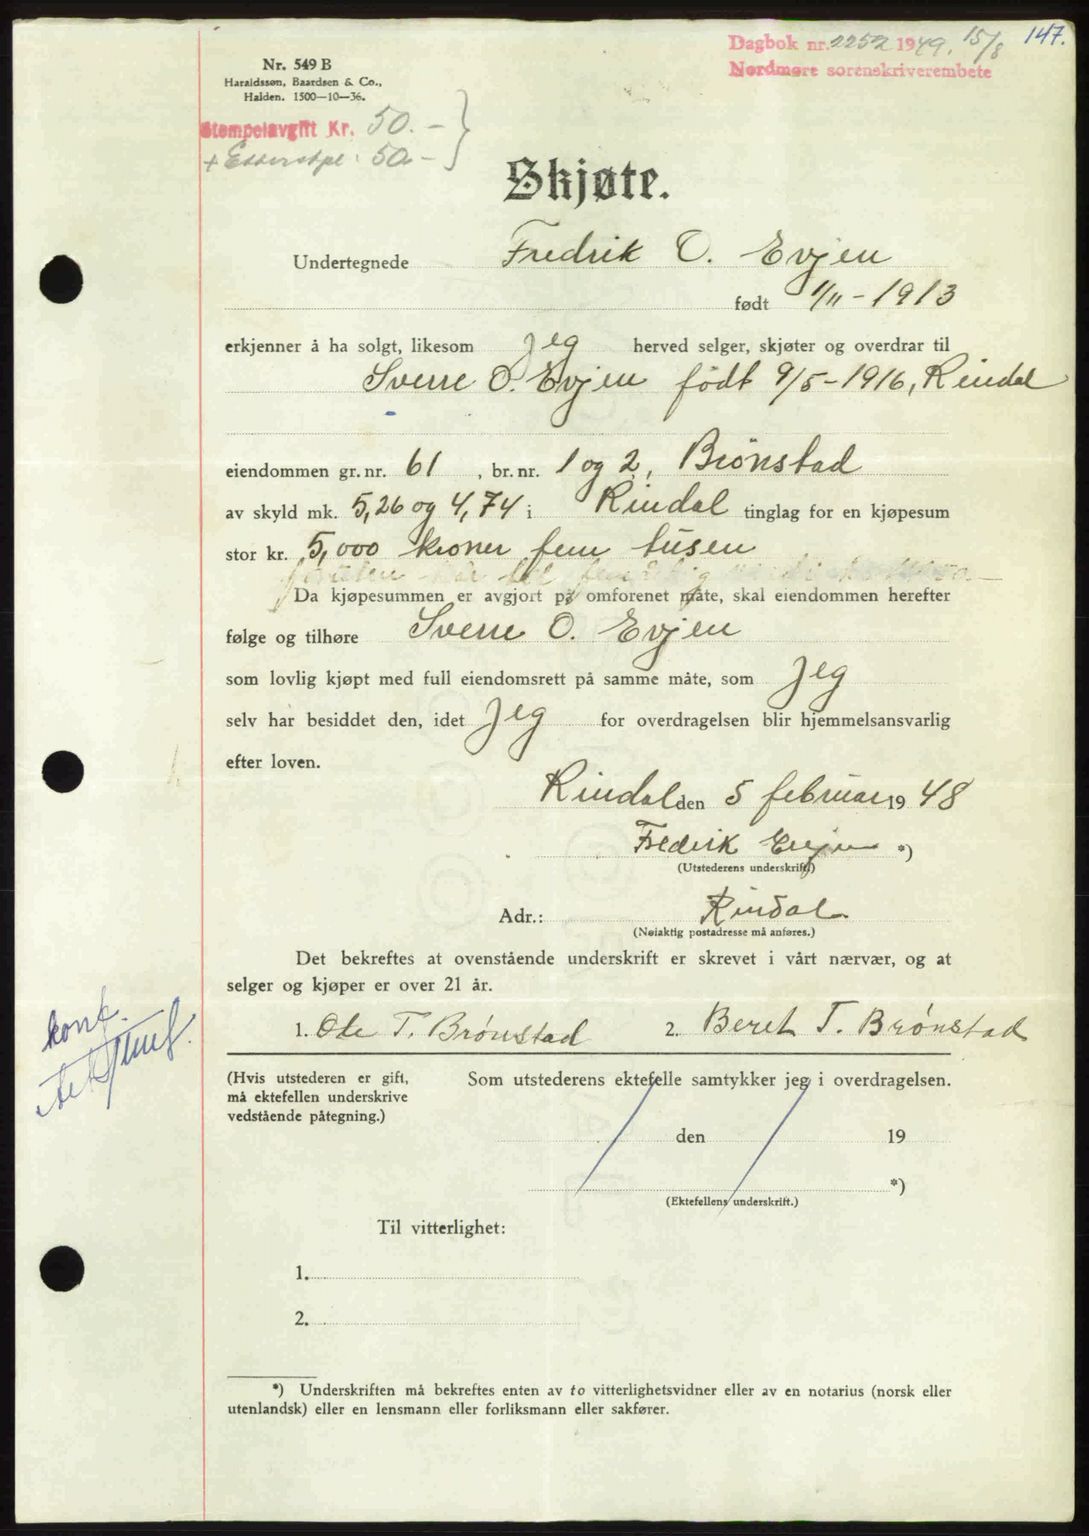 147.
Dagbok nr. 2252 1949. 15/8
Nordmøre sorenskriverembete
Nr. 549 B
Haraldssøn, Baardsen & Co.,
Halden. 1500—10—36.
Stempelavgift Kr. 50.-
+ Etterstpl: 50.-
Skjøte.
Undertegnede Fredrik O. Evjen
født 1/11-1913
erkjenner å ha solgt, likesom jeg herved selger, skjøter og overdrar til
Sverre O. Evjen født 9/5-1916, Rindal
eiendommen gr. nr. 61 , br. nr. 1 og 2, Brönstad
av skyld mk. 5,26 og 4,74 i Rindal tinglag for en kjøpesum
stor kr. 5,000 kroner fem tusen
Da kjøpesummen er avgjort på omforenet måte, skal eiendommen herefter
følge og tilhøre Sverre O. Evjen
som lovlig kjøpt med full eiendomsrett på samme måte, som jeg
selv har besiddet den, idet jeg for overdragelsen blir hjemmelsansvarlig
efter loven.
Rindal den 5 februar 1948
Fredrik Evjen *)
(Utstederens underskrift)
Adr.: Rindal
(Nøiaktig postadresse må anføres.)
Det bekreftes at ovenstående underskrift er skrevet i vårt nærvær, og at
selger og kjøper er over 21 år.
1. Ole T. Brønstad 2. Beret T. Brønstad
konf.
(Hvis utstederen er gift, Som utstederens ektefelle samtykker jeg i overdragelsen.
må ektefellen underskrive
vedstående påtegning.)
den 19
*)
(Ektefellens underskrift.)
Til vitterlighet:
1.
2.
*) Underskriften må bekreftes enten av to vitterlighetsvidner eller av en notarius (norsk eller
utenlandsk) eller en lensmann eller forliksmann eller sakfører.